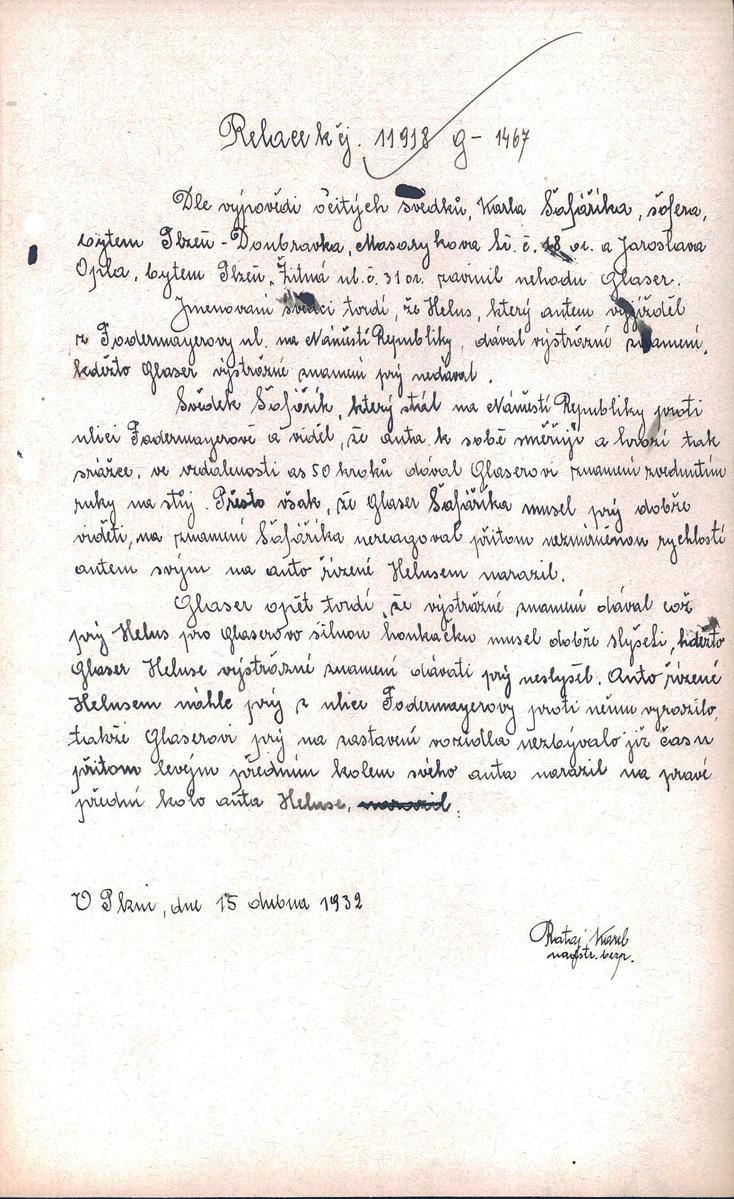 Relace k čj. 11918 g - 1467
Dle výpovědi očitých svědků, Karla Šafáříka, šofera,
bytem Plzeň - Doubravka, Masarykova tř. č. 18 or. a Jaroslava
Opla, bytem Plzeň, Žitná ul. č. 31 or. zavinil nehodu Glaser.
Jmenovaní svědci tvrdí, že Helus, který autem vyjížděl
z Fodermayerovy ul. na Náměstí Republiky, dával výstrážné znamení,
kdežto Glaser výstrážné znamení prý nedával.
Svědek Šafářík, který stál na Náměstí Republiky proti
ulici Fodermayerově a viděl, že auta k sobě směřují a hrozí tak
srážce, ve vzdálenosti as 50 kroků dával Glaserovi znamení zvednutím
ruky na stůj. Přesto však, že Glaser Šafáříka musel prý dobře
viděti, na znamení Šafáříka nereagoval přitom nezmírněnou rychlostí
autem svým na auto řízené Helusem narazil.
Glaser opět tvrdí, že výstrážné znamení dával což
prý Helus pro Glaserovo silnou houkačku musel dobře slyšeti, kdežto
Glaser Heluse výstrážné znamení dávati prý neslyšel. Auto řízené
Helusem náhle prý z ulice Fodermayerovy proti němu vyrazilo,
takže Glaserovi prý na zastavení vozidla nezbývalo již času
přitom levým předním kolem svého auta narazil na pravé
přední kolo auta Heluse, narazil.
V Plzni, dne 15 dubna 1932
Rataj Karel